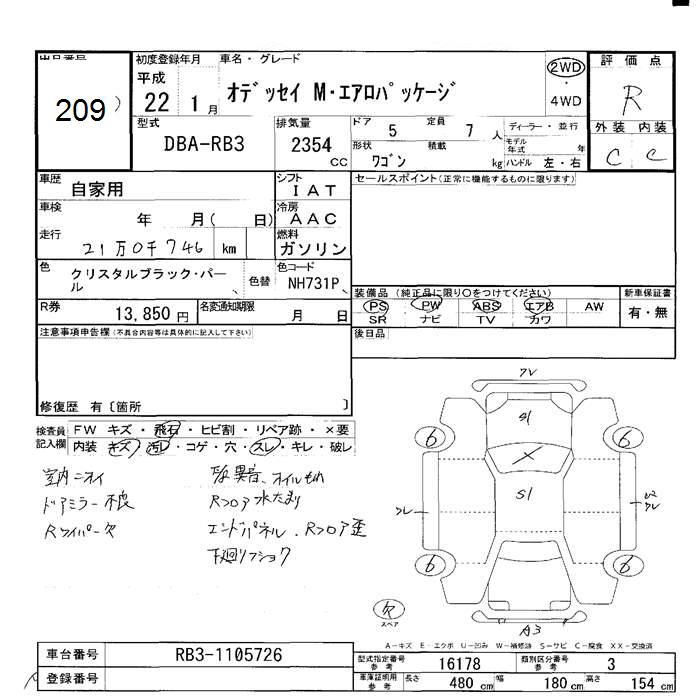 209
初度登録年月
平成
22 1月
車名・グレード
オデッセイ M・エアロパッケージ
2WD
・
4WD
評価点
R
外装 内装
C C
型式
DBA-RB3
排気量
2354
CC
ドア 5 定員 7 人
形状 ワゴン 積載 kg
ディーラー・並行
モデル年式 年
ハンドル 左・右
車歴 自家用
シフト IAT
セールスポイント(正常に機能するものに限ります)
車検 年 月( 日)
冷房 AAC
走行 21万0千746 km
燃料 ガソリン
色 クリスタルブラック・パール
色替
色コード NH731P
装備品 (純正品に限り○をつけてください)
新車保証書
PS PW ABS エアB AW
有・無
SR ナビ TV カワ
R券 13,850円
名変通知期限 月 日
後日品
注意事項申告欄(不具合内容等は具体的に記入して下さい)
修復歴 有〔箇所 〕
検査員記入欄
FW キズ・飛石・ヒビ割・リペア跡・×要
内装 キズ・汚レ・コゲ・穴・スレ・キレ・破レ
室内ニオイ
ドアミラー不良
Rワイパー欠
異音、オイルもれ
Rフロア水たまり
エンドパネル、Rフロア歪
下廻リフショク
フレ
S1
6 6
S1
フレ
6 6
欠
スペア
A3
A-キズ E-エクボ U-凹み W-補修跡 S-サビ C-腐食 XX-交換済
車台番号 RB3-1105726
登録番号
型式指定番号 参考 16178
類別区分番号 参考 3
車庫証明用 参考 長さ 480cm 幅 180cm 高さ 154cm